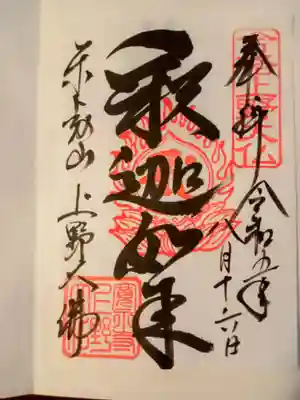 奉拝
令和五年
八月十六日
釈迦如来
東叡山
上野大佛